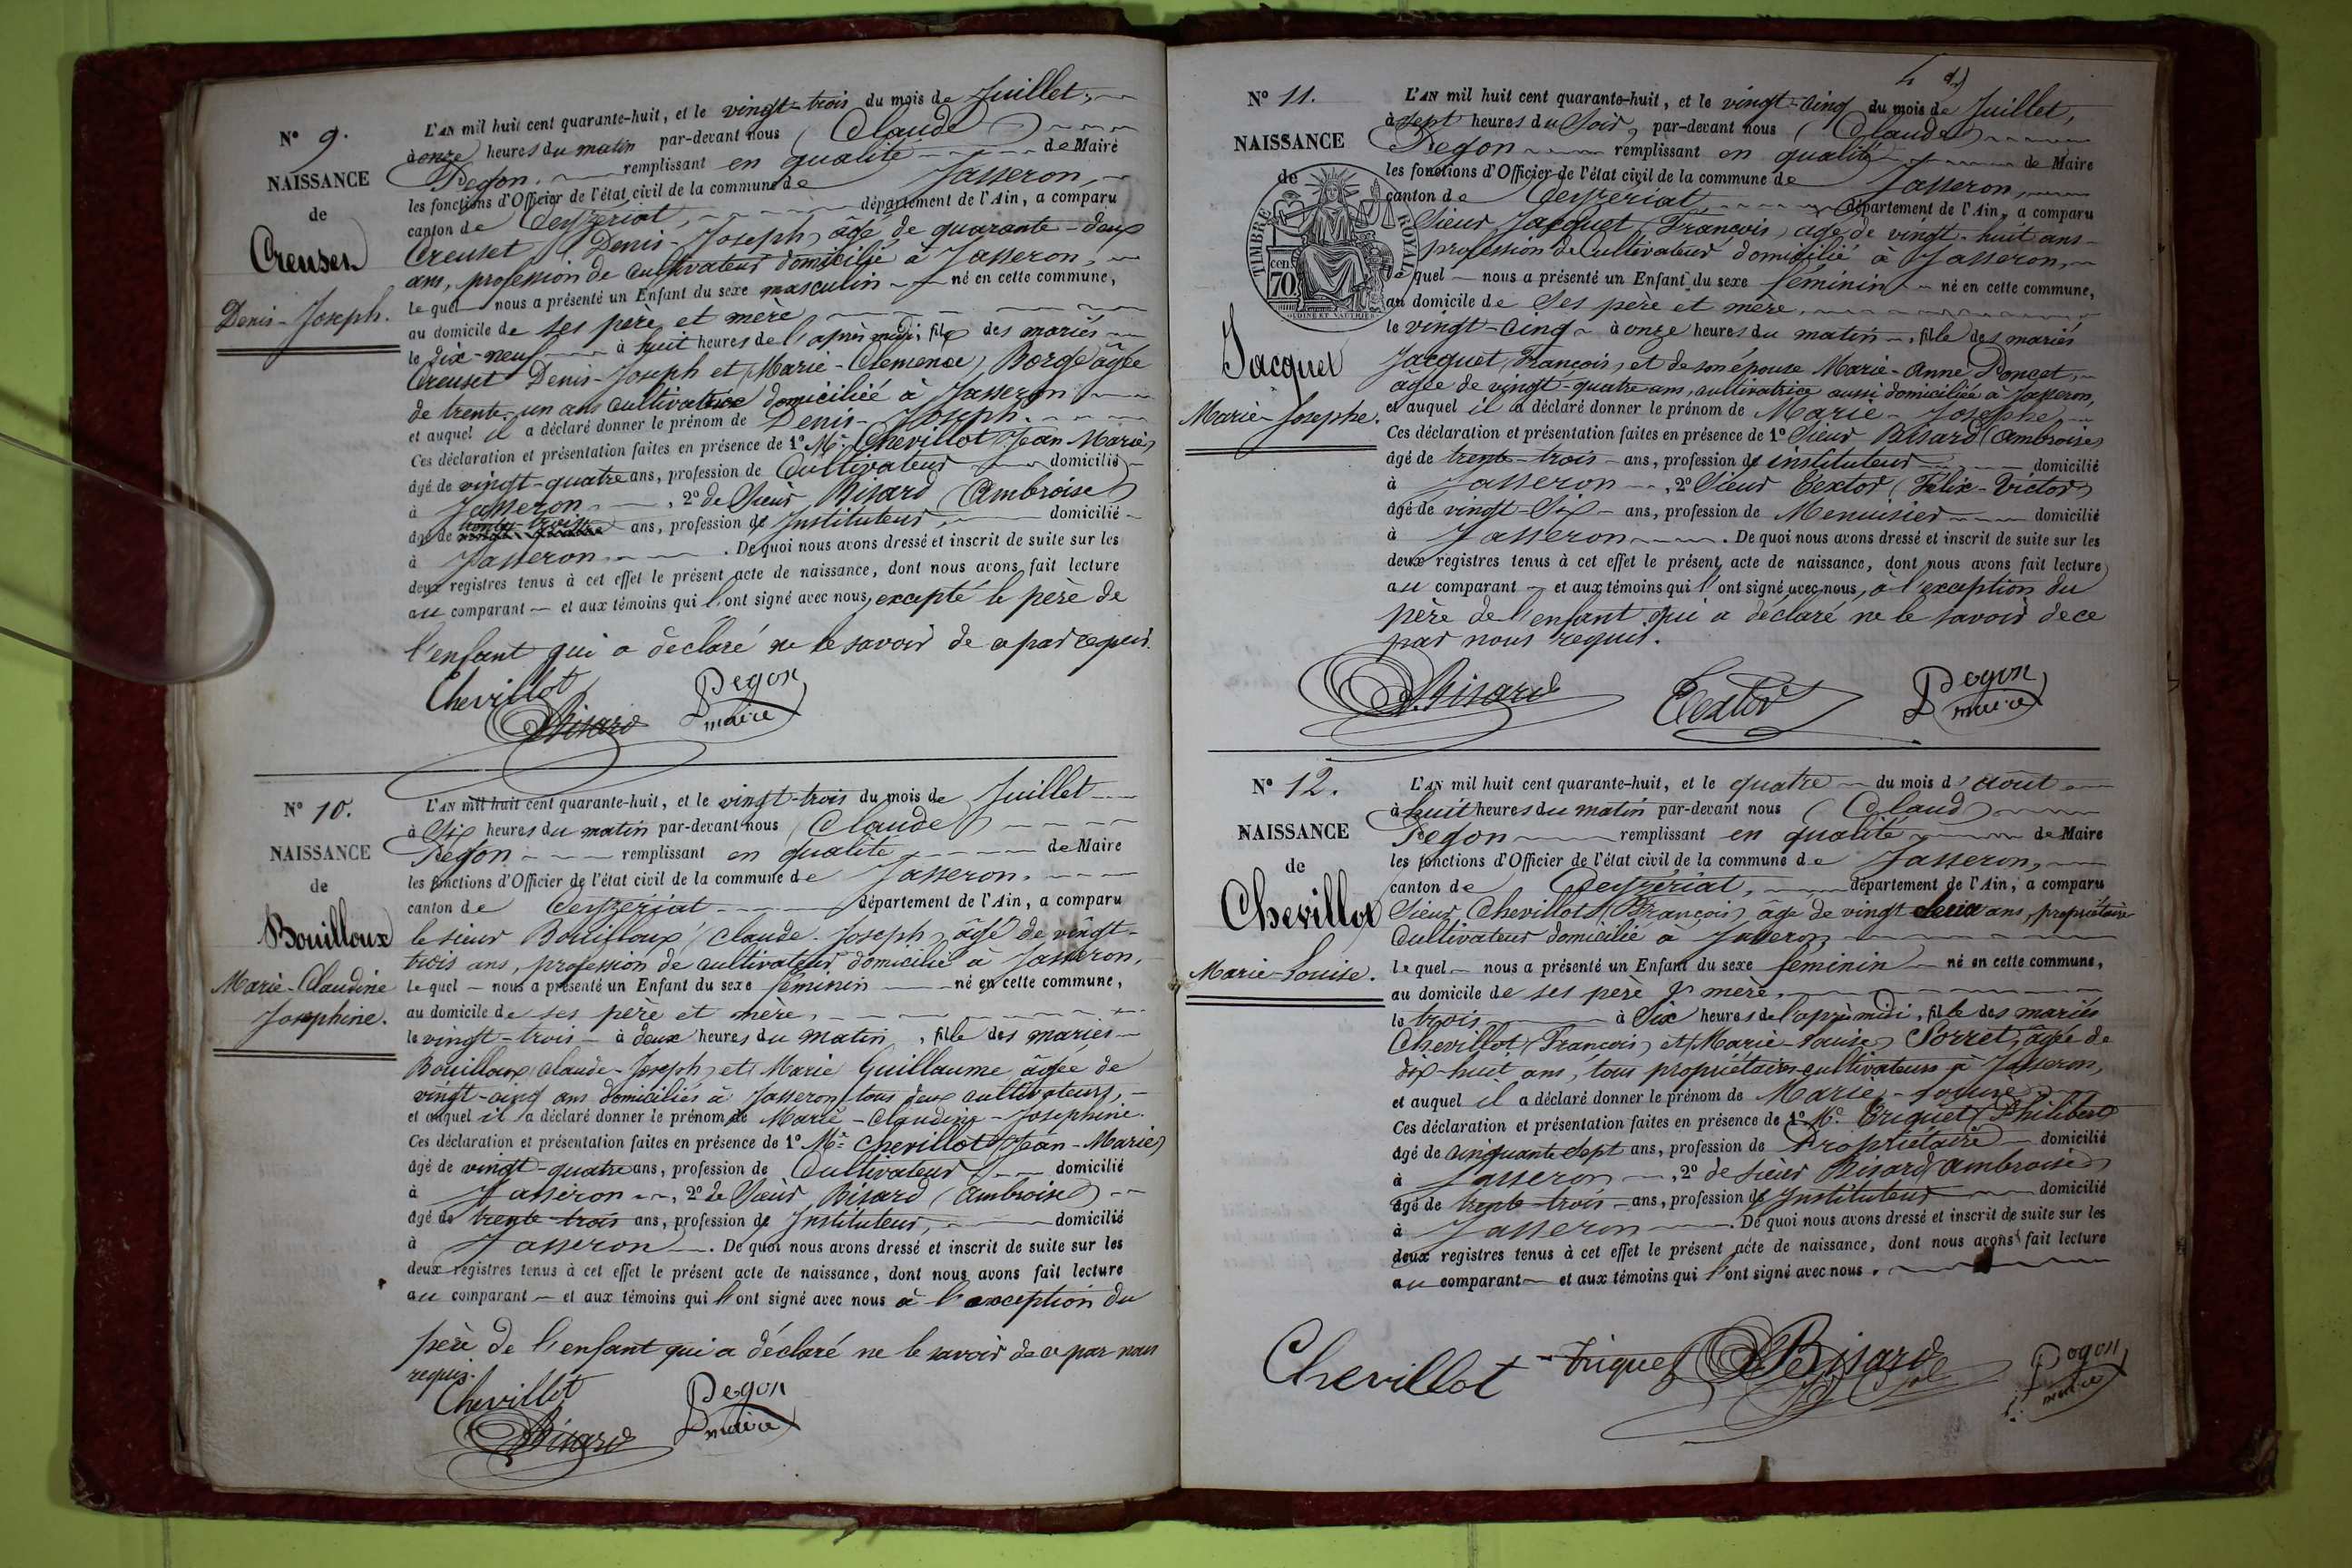 N° 9.
NAISSANCE
de
Creuset
Denis-Joseph.
L'AN mil huit cent quarante-huit, et le vingt-trois du mois de Juillet,
à onze heures du matin par-devant nous (Claude)
Pegon remplissant en qualité de Maire
les fonctions d'Officier de l'état civil de la commune de Jasseron,
canton de Ceyzériat, département de l'Ain, a comparu
Creuset (Denis-Joseph) âgé de quarante-deux
ans, profession de cultivateur domicilié à Jasseron,
lequel nous a présenté un Enfant du sexe masculin né en cette commune,
au domicile de ses père et mère,
le dix-neuf à huit heures de l'après midi, fils des mariés
Creuset Denis-Joseph et (Marie-Clémence) Borge âgée
de trente-un ans cultivatrice domiciliée à Jasseron
et auquel il a déclaré donner le prénom de Denis-Joseph.
Ces déclaration et présentation faites en présence de 1° Mr. Chevillot (Jean Marie)
âgé de vingt-quatre ans, profession de Cultivateur domicilié
à Jasseron, 2° de Sieur Bisard (Ambroise)
trente-trois
âgé de vingt-quatre ans, profession de Instituteur, domicilié
à Jasseron. De quoi nous avons dressé et inscrit de suite sur les
deux registres tenus à cet effet le présent acte de naissance, dont nous avons fait lecture
au comparant et aux témoins qui l'ont signé avec nous, excepté le père de
l'enfant qui a déclaré ne le savoir de ce par requis.
Chevillot
Bisard
Pegon
maire
N° 10.
NAISSANCE
de
Bouilloux
Marie-Claudine
Josephine.
L'AN mil huit cent quarante-huit, et le vingt-trois du mois de Juillet
à Six heures du matin par-devant nous (Claude)
Pegon remplissant en qualité de Maire
les fonctions d'Officier de l'état civil de la commune de Jasseron.
canton de Ceyzeriat département de l'Ain, a comparu
le sieur Bouilloux (Claude-Joseph) âgé de vingt-
trois ans, profession de cultivateur domicilié à Jasseron,
lequel nous a présenté un Enfant du sexe féminin né en cette commune,
au domicile de ses père et mère,
le vingt-trois à deux heures du matin, fille des mariés
Bouilloux (Claude-Joseph) et Marie Guillaume âgée de
vingt-cinq ans domiciliés à Jasseron tous deux cultivateurs,
et auquel il a déclaré donner le prénom de Marie-Claudine-Josephine.
Ces déclaration et présentation faites en présence de 1° Mr. Chevillot (Jean-Marie)
âgé de vingt-quatre ans, profession de Cultivateur domicilié
à Jasseron, 2° de Sieur Bisard (Ambroise)
âgé de trente-trois ans, profession de Instituteur, domicilié
à Jasseron. De quoi nous avons dressé et inscrit de suite sur les
deux registres tenus à cet effet le présent acte de naissance, dont nous avons fait lecture
au comparant et aux témoins qui l'ont signé avec nous à l'exception du
père de l'enfant qui a déclaré ne le savoir de ce par nous
requis.
Chevillot
Bisard
Pegon
maire
4
N° 11.
NAISSANCE
de
TIMBRE ROYAL
cen.
70
Jacquet
Marie-Josephe.
L'AN mil huit cent quarante-huit, et le vingt-cinq du mois de Juillet,
à sept heures du Soir, par-devant nous (Claude)
Pegon remplissant en qualité de Maire
les fonctions d'Officier de l'état civil de la commune de Jasseron,
canton de Ceyzériat, département de l'Ain, a comparu
Sieur Jacquet (François) âgé de vingt-huit ans
profession de Cultivateur domicilié à Jasseron,
lequel nous a présenté un Enfant du sexe féminin né en cette commune,
au domicile de ses père et mère,
le vingt-cinq à onze heures du matin, fille des mariés
Jacquet (François) et de son épouse Marie-Anne Poncet,
âgée de vingt-quatre ans, cultivatrice aussi domiciliée à Jasseron,
et auquel il a déclaré donner le prénom de Marie-Josephe
Ces déclaration et présentation faites en présence de 1° Sieur Bisard (Ambroise)
âgé de trente-trois ans, profession de instituteur domicilié
à Jasseron, 2° Sieur Textor (Félix-Victor)
âgé de vingt-Six ans, profession de Menuisier domicilié
à Jasseron. De quoi nous avons dressé et inscrit de suite sur les
deux registres tenus à cet effet le présent acte de naissance, dont nous avons fait lecture
au comparant et aux témoins qui l'ont signé avec nous, à l'exception du
père de l'enfant qui a déclaré ne le savoir de ce
par nous requis.
Bisard
Textor
Pegon
maire
N° 12.
NAISSANCE
de
Chevillot
Marie-Louise.
L'AN mil huit cent quarante-huit, et le quatre du mois d'aout
à huit heures du matin par-devant nous (Claud)
Pegon remplissant en qualité de Maire
les fonctions d'Officier de l'état civil de la commune de Jasseron,
canton de Ceyzériat, département de l'Ain, a comparu
Sieur Chevillot (François) âgé de vingt ans, propriétaire
Cultivateur domicilié à Jasseron
lequel nous a présenté un Enfant du sexe féminin né en cette commune,
au domicile de ses père & mère,
le trois à Six heures de l'après midi, fille des mariés
Chevillot (François) et (Marie-Louise) Porret, âgée de
dix-huit ans, tous propriétaires-cultivateurs à Jasseron,
et auquel il a déclaré donner le prénom de Marie-Louise
Ces déclaration et présentation faites en présence de 1° Mr. Triquet (Philibert)
âgé de cinquante Sept ans, profession de Propriétaire domicilié
à Jasseron, 2° de sieur Bisard (ambroise)
âgé de trente-trois ans, profession de Instituteur domicilié
à Jasseron. De quoi nous avons dressé et inscrit de suite sur les
deux registres tenus à cet effet le présent acte de naissance, dont nous avons fait lecture
au comparant et aux témoins qui l'ont signé avec nous.
Chevillot
Triquet
Bisard
Pegon
maire